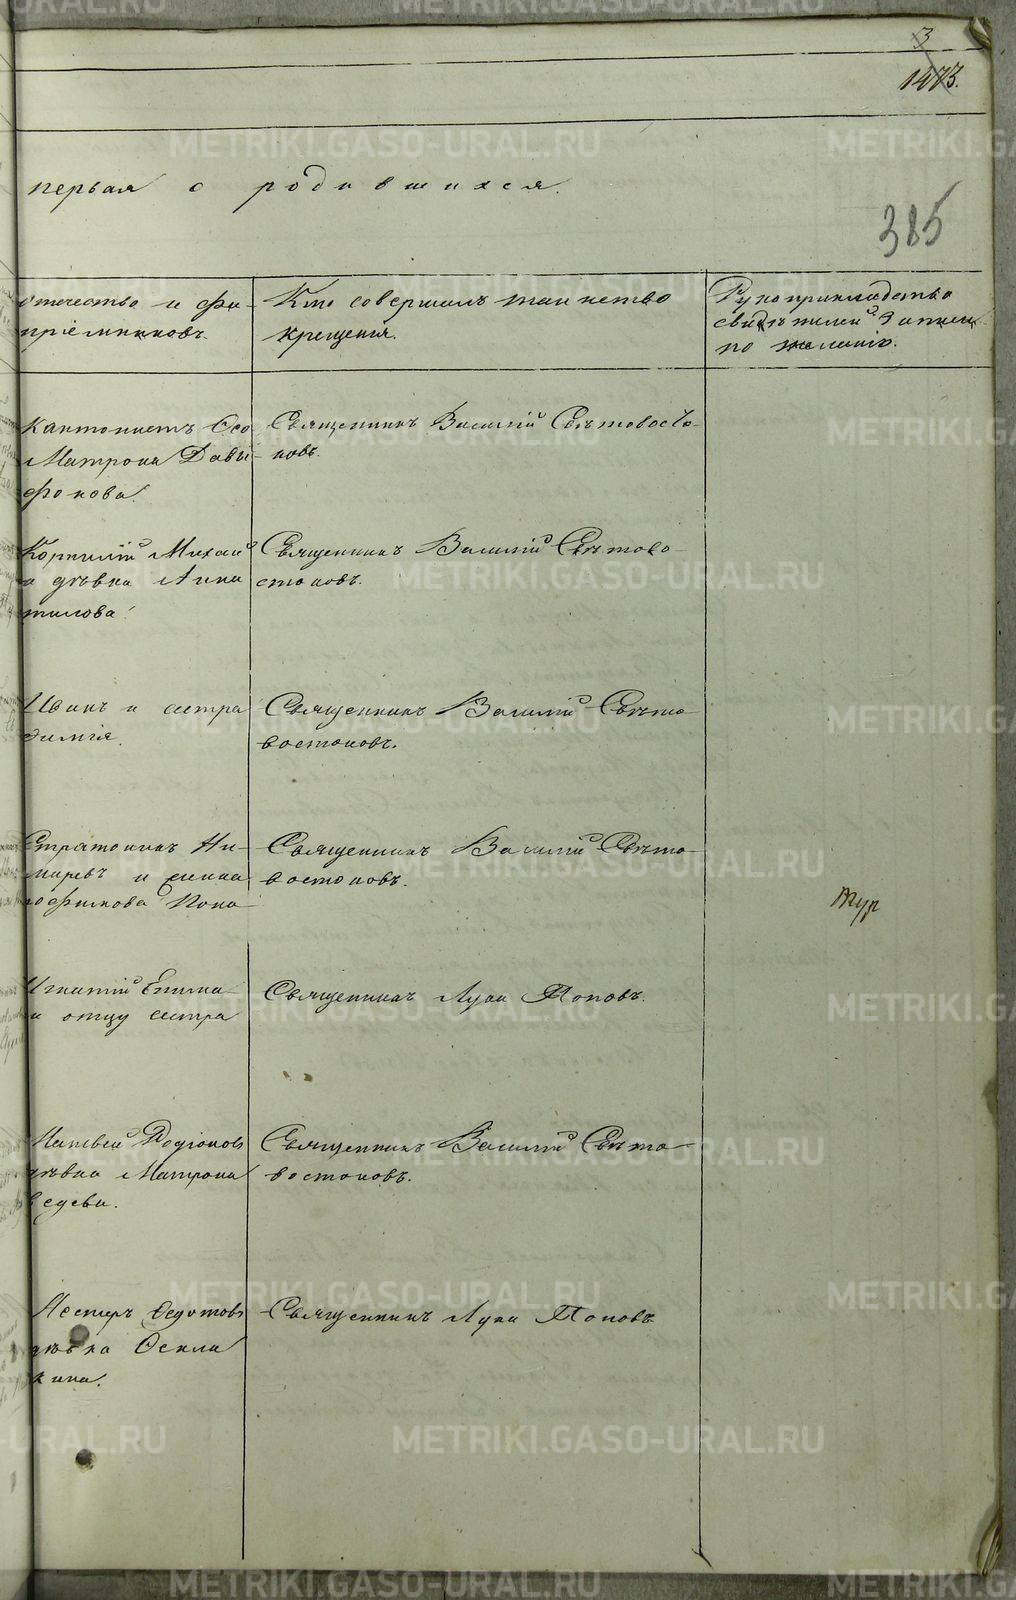 3
1473.
первая о родившихся.
385
отчество и фа-
пріемниковъ.
Кто совершалъ таинство
крещенія.
Рукоприкладство
свидѣтелей записи
по желанію.
Кантонистъ Осо-
Матрона Давы-
фонова.
Священникъ Василій Свѣтовосто-
ковъ.
Корнилій Михай
а дѣвка Анна
тилова.
Священникъ Василій Свѣтово-
стоковъ.
Иванъ и сестра
Священникъ Василій Свѣто-
востоковъ.
Стратоникъ Ни-
офимова Поно-
Священникъ Василій Свѣто-
востоковъ.
Тур
Игнатій Епима-
и отцу сестра
Священникъ Лука Поповъ.
Матвей Родіоновъ
дѣвка Матрона
ведева.
Священникъ Василій Свѣто-
востоковъ.
Нестеръ Федотовъ
дѣвка Фекла
кина.
Священникъ Лука Поповъ
METRIKI.GASO-URAL.RU